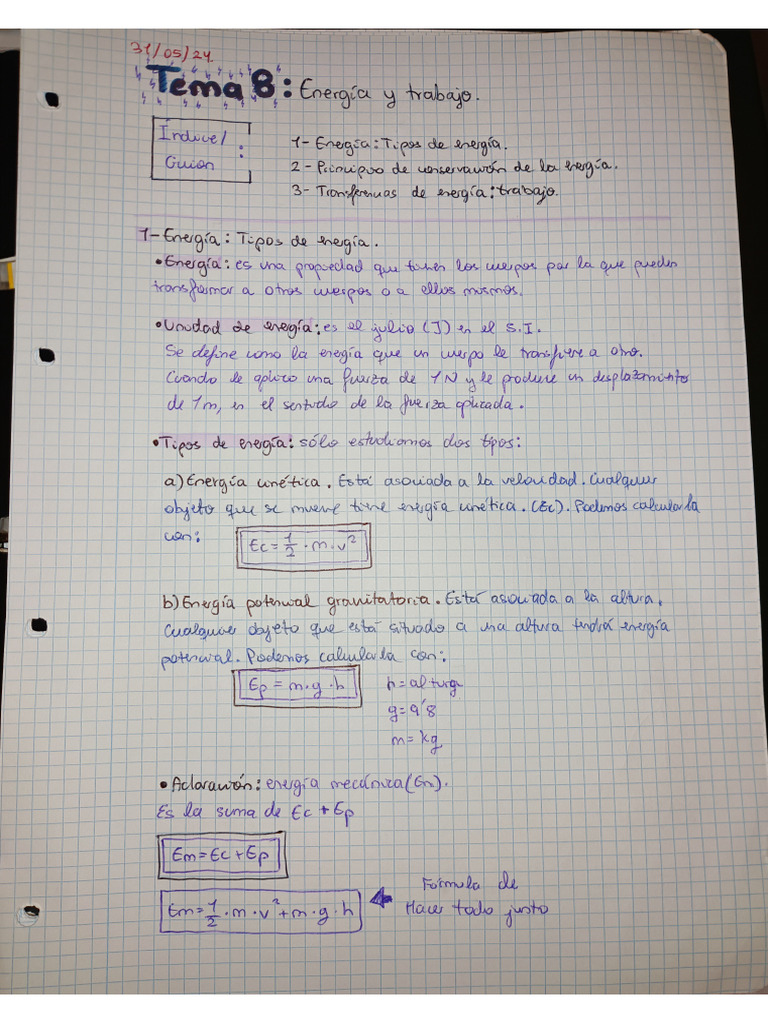 31/05/24
Tema 8: Energía y trabajo.
Índice/
Guion :
1- Energía: Tipos de energía.
2- Principio de conservación de la energía.
3- Transferencias de energía: trabajo.
1- Energía: Tipos de energía.
• Energía: es una propiedad que tienen los cuerpos por la que pueden
transformar a otros cuerpos o a ellos mismos.
• Unidad de energía: es el julio (J) en el S.I.
Se define como la energía que un cuerpo le transfiere a otro.
Cuando le aplico una fuerza de 1N y le produce un desplazamiento
de 1m, en el sentido de la fuerza aplicada.
• Tipos de energía: sólo estudiamos dos tipos:
a) Energía cinética. Está asociada a la velocidad. Cualquier
objeto que se mueve tiene energía cinética. (Ec). Podemos calcularla
con:
Ec = 1/2 · m · v²
b) Energía potencial gravitatoria. Está asociada a la altura.
Cualquier objeto que está situado a una altura tendrá energía
potencial. Podemos calcularla con:
Ep = m · g · h
h = altura
g = 9'8
m = kg
• Aclaración: energía mecánica (Em).
Es la suma de Ec + Ep
Em = Ec + Ep
Em = 1/2 · m · v² + m · g · h
Fórmula de
Hacer todo junto